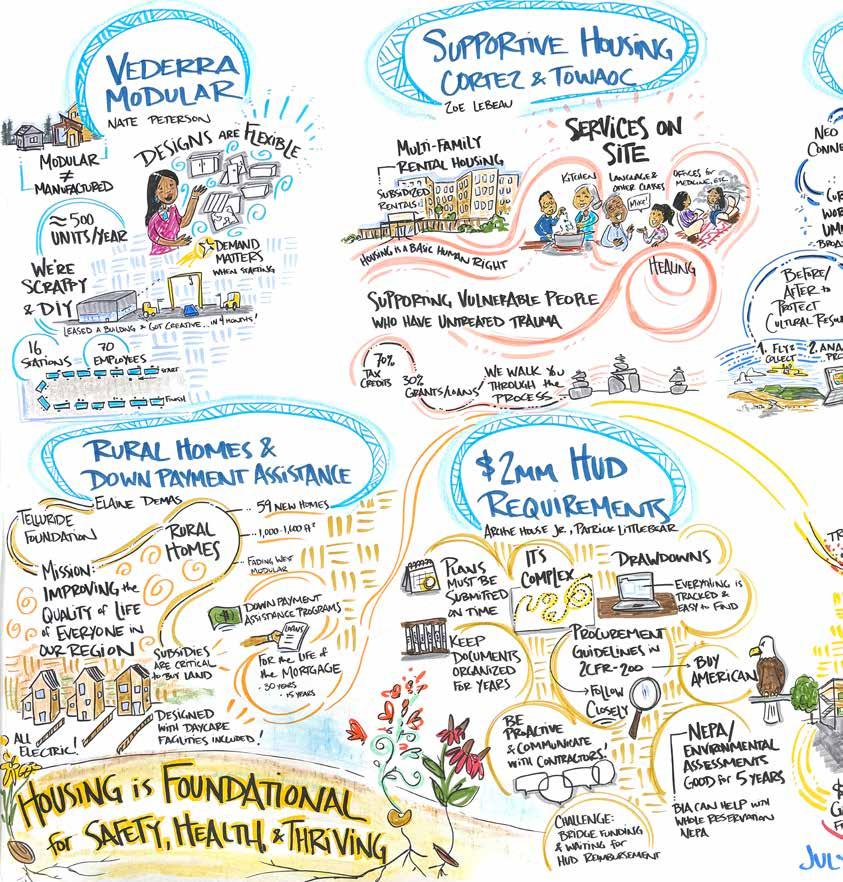 VEDERRA
MODULAR
NATE PETERSON
MODULAR
≠
MANUFACTURED
DESIGNS ARE FLEXIBLE
≈500
UNITS/YEAR
DEMAND
MATTERS
WHEN STARTING
WE'RE
SCRAPPY
& DIY
LEASED A BUILDING & GOT CREATIVE... IN 4 MONTHS!
16
STATIONS
70
EMPLOYEES
START
FINISH
SUPPORTIVE HOUSING
CORTEZ & TOWAOC
ZOE LEBEAU
MULTI-FAMILY
RENTAL HOUSING
SUBSIDIZED
RENTALS
HOUSING IS A BASIC HUMAN RIGHT
SERVICES ON
SITE
KITCHEN
LANGUAGE &
OTHER CLASSES
OFFICES for
MEDICINE, ETC.
HEALING
SUPPORTING VULNERABLE PEOPLE
WHO HAVE UNTREATED TRAUMA
70%
TAX
CREDITS
30%
GRANTS/LOANS
WE WALK YOU
THROUGH the
PROCESS
NEO
CONNE
BEFORE/
AFTER to
PROTECT
CULTURAL RESOU
1. FLY &
COLLECT
2. ANA
RURAL HOMES &
DOWN PAYMENT ASSISTANCE
ELAINE DEMAS
TELLURIDE
FOUNDATION
RURAL
HOMES
59 NEW HOMES
1,000-1,600 ft²
FADING WEST
MODULAR
MISSION:
IMPROVING the
QUALITY of LIFE
of EVERYONE IN
OUR REGION
DOWN PAYMENT
ASSISTANCE PROGRAMS
LOANS
FOR the LIFE of
the MORTGAGE
· 30 YEARS
· 15 YEARS
SUBSIDIES
ARE CRITICAL
to BUY LAND
ALL
ELECTRIC!
DESIGNED
WITH DAYCARE
FACILITIES INCLUDED!
HOUSING is FOUNDATIONAL
for SAFETY, HEALTH, & THRIVING
$2MM HUD
REQUIREMENTS
ARCHIE HOUSE JR., PATRICK LITTLEBEAR
PLANS
MUST BE
SUBMITTED
ON TIME
IT'S
COMPLEX
DRAWDOWNS
EVERYTHING IS
TRACKED &
EASY to FIND
KEEP
DOCUMENTS
ORGANIZED
FOR YEARS
PROCUREMENT
GUIDELINES IN
2CFR-200
FOLLOW
CLOSELY
BUY
AMERICAN
BE
PROACTIVE
& COMMUNICATE
WITH CONTRACTORS!
NEPA/
ENVIRONMENTAL
ASSESSMENTS
GOOD for 5 YEARS
BIA CAN HELP WITH
WHOLE RESERVATION
NEPA
CHALLENGE:
BRIDGE FUNDING
& WAITING for
HUD REIMBURSEMENT
JULY